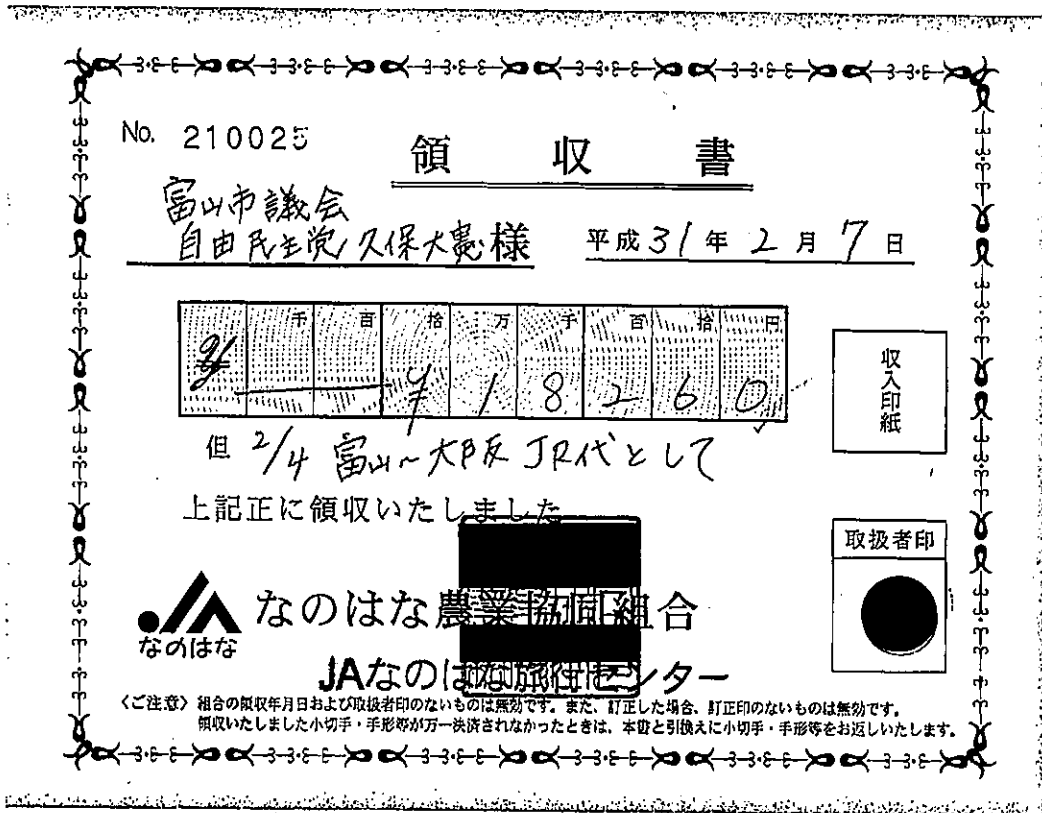 No. 210025
領収書
富山市議会
自由民主党 久保大憲様
平成31年2月7日
千 百 拾 万 千 百 拾 円
¥18260
収入印紙
但 2/4 富山~大阪 JR代として
上記正に領収いたしました
取扱者印
なのはな
なのはな農業協同組合
JAなのはな旅行センター
〈ご注意〉組合の領収年月日および取扱者印のないものは無効です。また、訂正した場合、訂正印のないものは無効です。
領収いたしました小切手・手形等が万一決済されなかったときは、本書と引換えに小切手・手形等をお返しいたします。